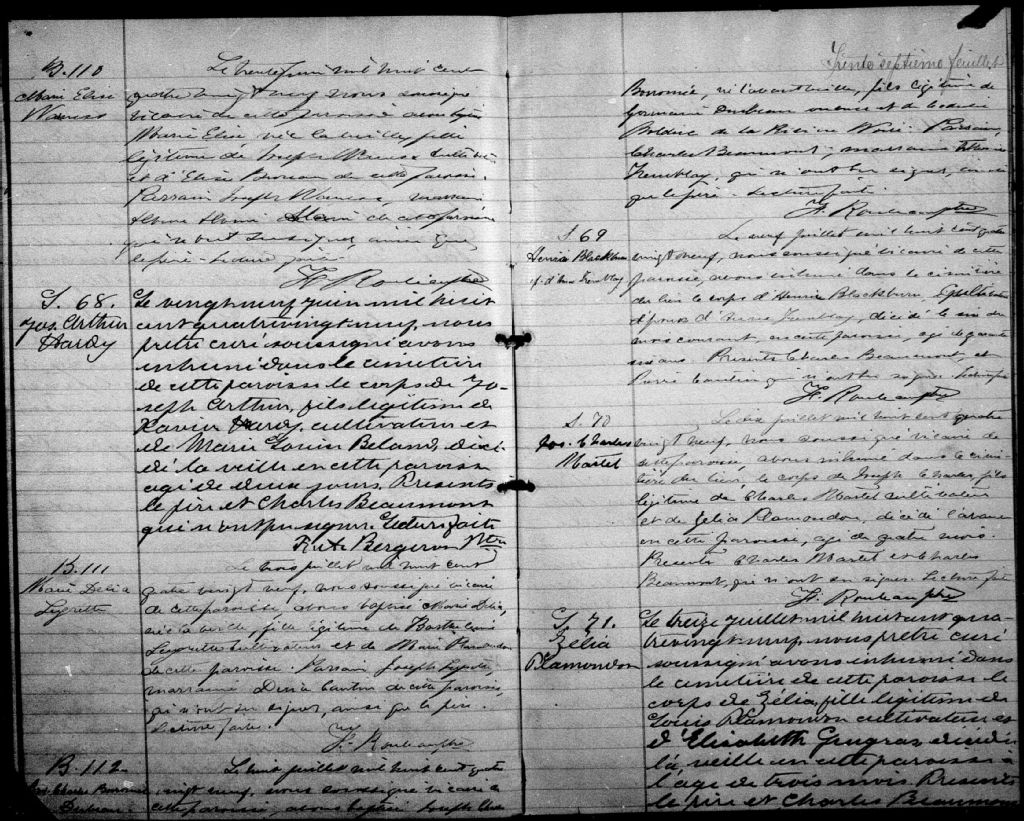 B.110
Marie Elise
Le trente juin mil huit cent
quatre vingt neuf nous soussigné
vicaire de cette paroisse avons baptisé
Marie Elise née la veille, fille
légitime de Joseph
et d'Elise Bureau de cette paroisse.
Parrain Joseph
de cette paroisse
qui ne ont su signer, ainsi que
le père. Lecture faite.
S. 68.
Jos. Arthur
Hardy
Le vingt neuf juin mil huit
cent quatrevingt neuf, nous
prêtre curé soussigné avons
inhumé dans le cimetière
de cette paroisse le corps de Jo-
seph Arthur, fils légitime de
Xavier Hardy, cultivateur et
de Marie Louise Beland, décé-
dé la veille en cette paroisse
agé de deux jours. Présents
le père et Charles Beaumont
qui n'ont pu signer. Lecture faite
Bergeron Ptre
B.111
Marie Delia
Le trois juillet mil huit cent
quatre vingt neuf, nous soussigné vicaire
de cette paroisse, avons baptisé Marie Delia,
née la veille, fille légitime de
cultivateur et de Marie Plamondon
de cette paroisse. Parrain Joseph
marraine Cantin de cette paroisse,
qui n'ont su signer, ainsi que le père.
Lecture faite.
B.112
Jos. Charles Borromée
Le huit juillet mil huit cent quatre
vingt neuf, nous soussigné vicaire de
cette paroisse, avons baptisé Joseph Charles
Trente septième feuillet
Borromée, né l'avant veille, fils légitime de
Germain
Bolduc de la Rivière Noire. Parrain,
Charles Beaumont, marraine
Tremblay, qui n'ont su signer, ainsi
que le père. Lecture faite.
S. 69
Henria Blackburn
Tremblay
Le neuf juillet mil huit cent quatre
vingt neuf, nous soussigné vicaire de cette
paroisse, avons inhumé dans le cimetière
du lieu le corps d'Henria Blackburn,
épouse d' Tremblay, décédé le six du
mois courant, en cette paroisse, agé de quarante
six ans. Présents Charles Beaumont, et
Pierre Cantin qui n'ont su signer. Lecture faite
S. 70
Jos. Charles
Martel
Le dix juillet mil huit cent quatre
vingt neuf, nous soussigné vicaire de
cette paroisse, avons inhumé dans le cime-
tière du lieu, le corps de Joseph Charles, fils
légitime de Charles Martel cultivateur
et de Zélia Plamondon, décédé
en cette paroisse, agé de quatre mois.
Présents Charles Martel et Charles
Beaumont, qui n'ont su signer. Lecture faite
S. 71.
Zélia
Plamondon
Le treize juillet mil huit cent qua-
trevingt neuf, nous prêtre curé
soussigné avons inhumé dans
le cimetière de cette paroisse le
corps de Zélia, fille légitime de
Louis Plamondon cultivateur et
d'Elisabeth Gingras, décédée
la veille en cette paroisse à
l'age de trois mois. Présents
le père et Charles Beaumont